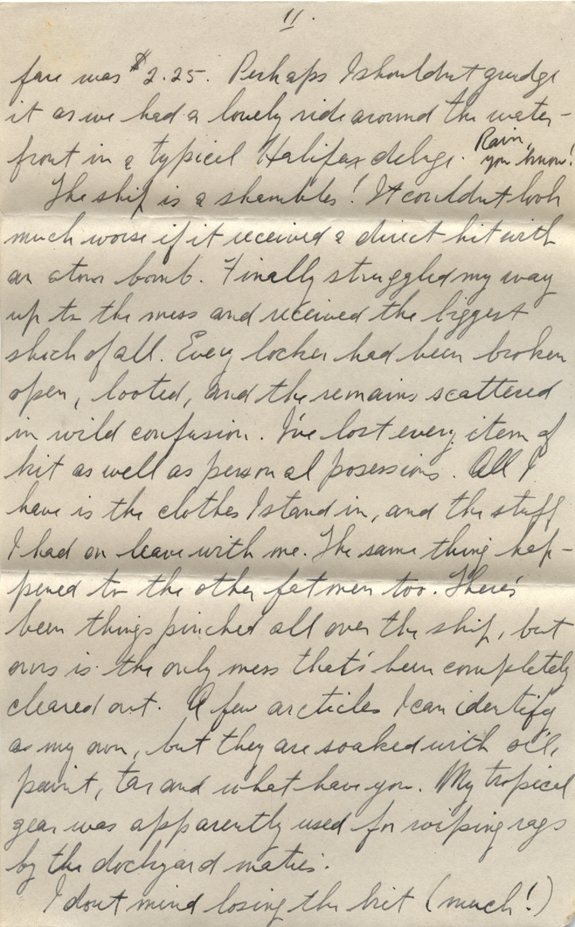 11.
fare was $2.25. Perhaps I shouldnt grudge
it as we had a lovely ride around the water-
front in a typical Halifax deluge. Rain, you know!
The ship is a shambles! It couldnt look
much worse if it received a direct hit with
an atom bomb. Finally struggled my way
up to the mess and received the biggest
shock of all. Every locker had been broken
open, looted, and the remains scattered
in wild confusion. I've lost every item of
kit as well as personal posessions. All I
have is the clothes I stand in, and the stuff
I had on leave with me. The same thing hap-
pened to the other fatmen too. There's
been things pinched all over the ship, but
ours is the only mess that's been completely
cleared out. A few arcticles I can identify
as my own, but they are soaked with oil,
paint, tar and what have you. My tropical
gear was apparently used for wiping rags
by the dockyard maties.
I dont mind losing the kit (much!)